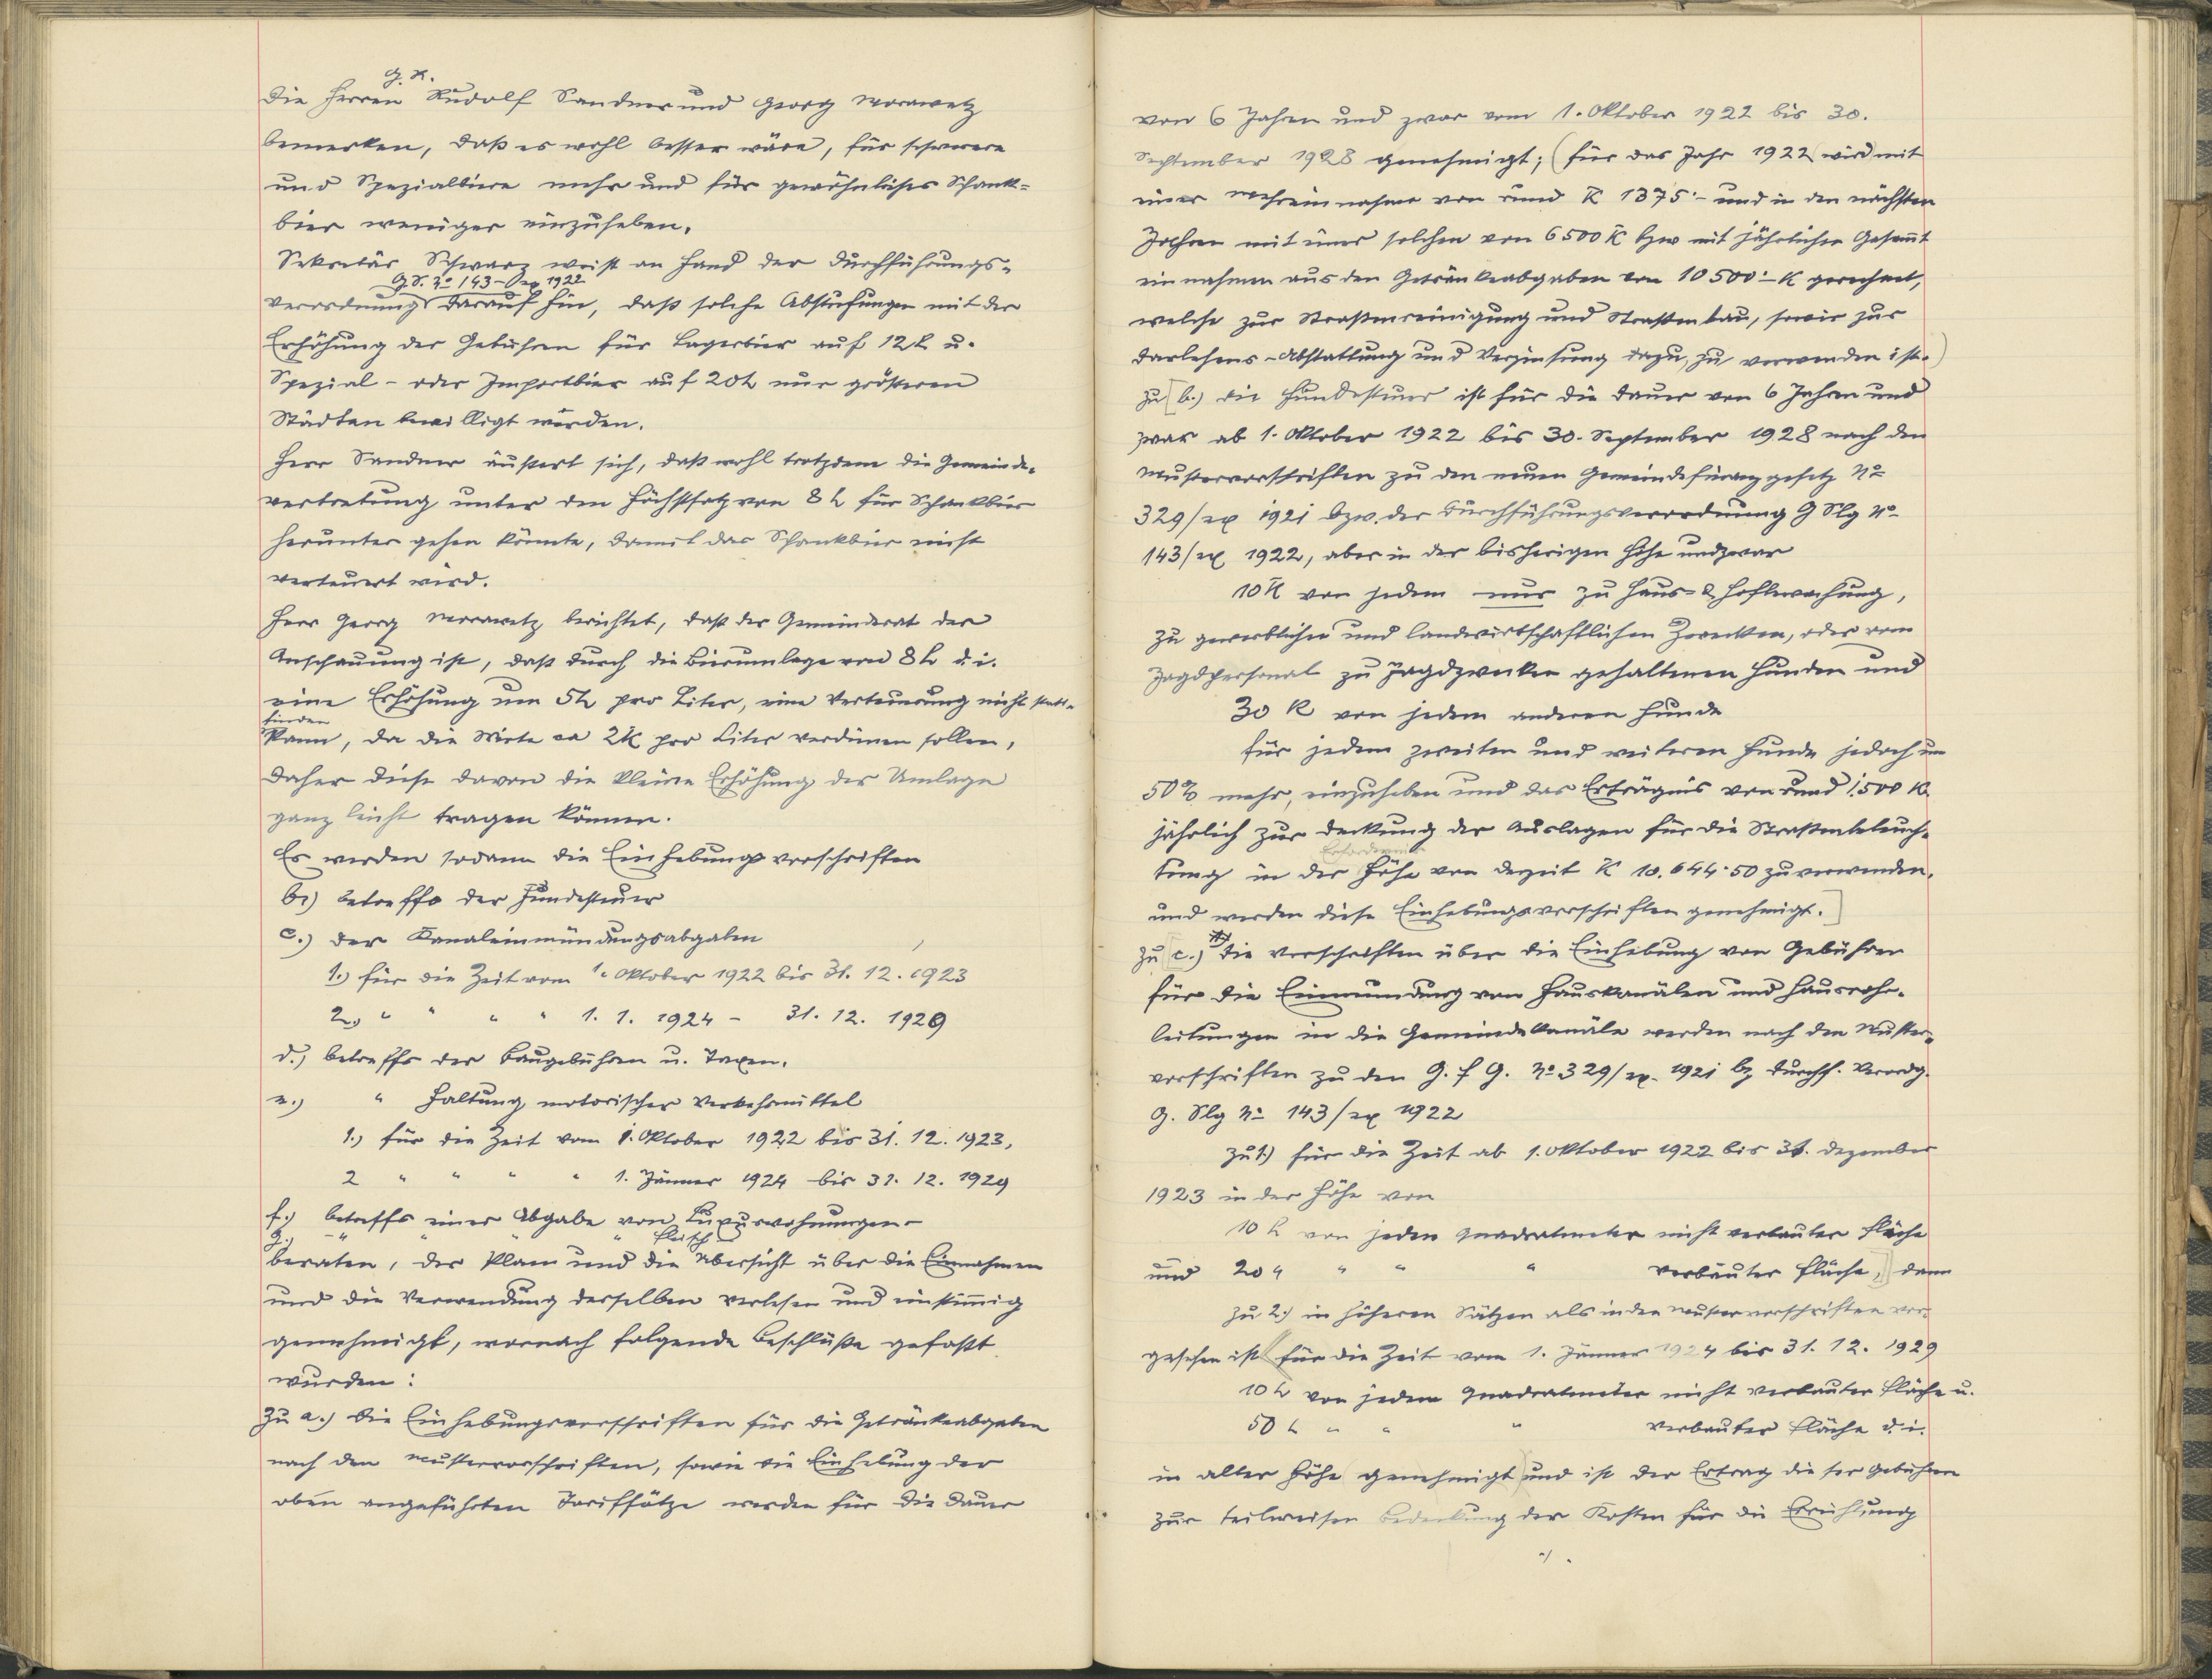 G. R.
Die Herren Rudolf Sandner und Georg Morawetz
bemerken, daß es wohl besser wäre, für schwerere
und Spezialbiere mehr und für gewöhnliches Schank-
bier weniger einzuheben.
Sekretär Schwarz weist an Hand der Durchführungs-
G. S. No 143 - ex 1922
verordnung darauf hin, daß solche Abstufungen mit der
Erhöhung der Gebühren für Lagerbier auf 12 h u.
Spezial- oder Importbier auf 20 h nur größeren
Städten bewilligt würden.
Herr Sandner äußert sich, daß wohl trotzdem die Gemeinde-
vertretung unter den Höchstsatz von 8 h für Schankbier
herunter gehen könnte, damit das Schankbier nicht
verteuert wird.
Herr Georg Morawetz berichtet, daß der Gemeinderat der
Anschauung ist, daß durch die Bierumlage von 8 h d. i.
eine Erhöhung um 5 h pro Liter, eine Verteuerung nicht statt-
finden
kann, da die Wirte ca 2 K pro Liter verdienen sollen,
daher diese davon die kleine Erhöhung der Umlage
ganz leicht tragen können.
Es werden sodann die Einhebungsvorschriften
b.) betreffs der Hundesteuer
c.) der Kanaleinmündungsabgaben
1.) für die Zeit vom 1. Oktober 1922 bis 31. 12. 1923
2.) " " " " 1. 1. 1924 - 31. 12. 1929
d.) betreffs der Baugebühren u. Taxen.
e.) " Haltung motorischer Verkehrsmittel
1.) für die Zeit vom 1. Oktober 1922 bis 31. 12. 1923,
2 " " " " 1. Jänner 1924 bis 31. 12. 1929
f.) betreffs einer Abgabe von Luxuswohnungen -
g.) " " " Fleisch
beraten, der Plan und die Übersicht über die Einnahmen
und die Verwendung derselben verlesen und einstimmig
genehmigt, wornach folgende Beschlüße gefaßt
wurden:
Zu a.) Die Einhebungsvorschriften für die Getränkeabgaben
nach den Mustervorschriften, sowie die Einhebung der
oben angeführten Tariffsätze werden für die Dauer
von 6 Jahren und zwar vom 1. Oktober 1922 bis 30.
September 1928 genehmigt; (für das Jahr 1922 wird mit
einer Mehreinnahme von rund K 1375·- und in den nächsten
Jahren mit einer solchen von 6500 K bzw mit jährlicher Gesamt
einnahmen aus den Getränkeabgaben von 10500·- K gerechnet,
welche zur Straßenreinigung und Straßenbau, sowie zur
Darlehens-Abstattung und Verzinsung dazu, zu verwenden ist.)
zu [b.) die Hundesteuer ist für die Dauer von 6 Jahren und
zwar ab 1. Oktober 1922 bis 30. September 1928 nach den
Mustervorschriften zu den neuen Gemeindefinanzgesetz No
329/ex 1921 bzw. der Durchführungsverordnung G Slg No
143/ex 1922, aber in der bisherigen Höhe undzwar
10 K von jedem nur zu Haus- & Hofbewachung,
zu gewerblichen und landwirtschaftlichen Zwecken, oder vom
Jagdpersonal zu Jagdzwecken gehaltenen Hunden und
30 K von jedem anderen Hunde
für jedem zweiten und weiteren Hunde jedoch um
50% mehr, einzuheben und das Erträgnis von rund 1.500 K.
jährlich zur Deckung der Auslagen für die Straßenbeleuch-
Erfordernis
tung in der Höhe von derzeit K 10.644·50 zu verwenden.
und werden diese Einhebungsvorschriften genehmigt.]
zu [c.) die Vorschriften über die Einhebung von Gebühren
für die Einmündung von Hauskanälen und Hausrohr-
leitungen in die Gemeindekanäle werden nach den Muster-
vorschriften zu den G. f G. No 329/ex. 1921 bz Durchf. Verordg.
G. Slg No 143/ex 1922
zu 1) für die Zeit ab 1. Oktober 1922 bis 31. Dezember
1923 in der Höhe von
10 h von jeden Quadratmeter nicht verbauter Fläche
und 20 " " " " verbauter Fläche,] dann
zu 2.) in höheren Sätzen als in den Mustervorschriften vor-
gesehen ist für die Zeit vom 1. Jänner 1924 bis 31. 12. 1929
10 h von jedem Quadratmeter nicht verbauter Fläche u.
50 h " " " verbauter Fläche d. i.
in alter Höhe (genehmigt) und ist der Ertrag dieser Gebühren
zur teilweisen Bedeckung der Kosten für die Errichtung
./.